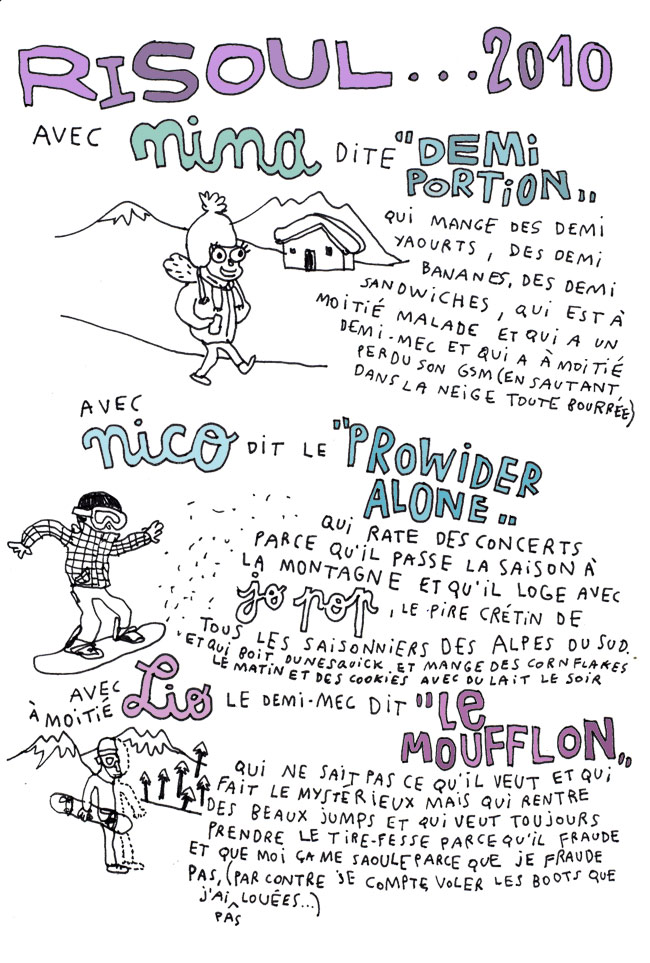 RISOUL...2010
AVEC nina DITE "DEMI
PORTION"
QUI MANGE DES DEMI
YAOURTS, DES DEMI
BANANES, DES DEMI
SANDWICHES, QUI EST À
MOITIÉ MALADE ET QUI A UN
DEMI-MEC ET QUI A À MOITIÉ
PERDU SON GSM (EN SAUTANT
DANS LA NEIGE TOUTE BOURRÉE)
AVEC
nico DIT LE "PROWIDER
ALONE"
QUI RATE DES CONCERTS
PARCE QU'IL PASSE LA SAISON À
LA MONTAGNE ET QU'IL LOGE AVEC
jo pop, LE PIRE CRÉTIN DE
TOUS LES SAISONNIERS DES ALPES DU SUD.
ET QUI BOIT DUNESQUICK ET MANGE DES CORNFLAKES
LE MATIN ET DES COOKIES AVEC DU LAIT LE SOIR
AVEC
À MOITIÉ Lio LE DEMI-MEC DIT "LE
MOUFFLON"
QUI NE SAIT PAS CE QU'IL VEUT ET QUI
FAIT LE MYSTÉRIEUX MAIS QUI RENTRE
DES BEAUX JUMPS ET QUI VEUT TOUJOURS
PRENDRE LE TIRE-FESSE PARCE QU'IL FRAUDE
ET QUE MOI ÇA ME SAOULE PARCE QUE JE FRAUDE
PAS, (PAR CONTRE JE COMPTE VOLER LES BOOTS QUE
J'AI LOUÉES...)
PAS